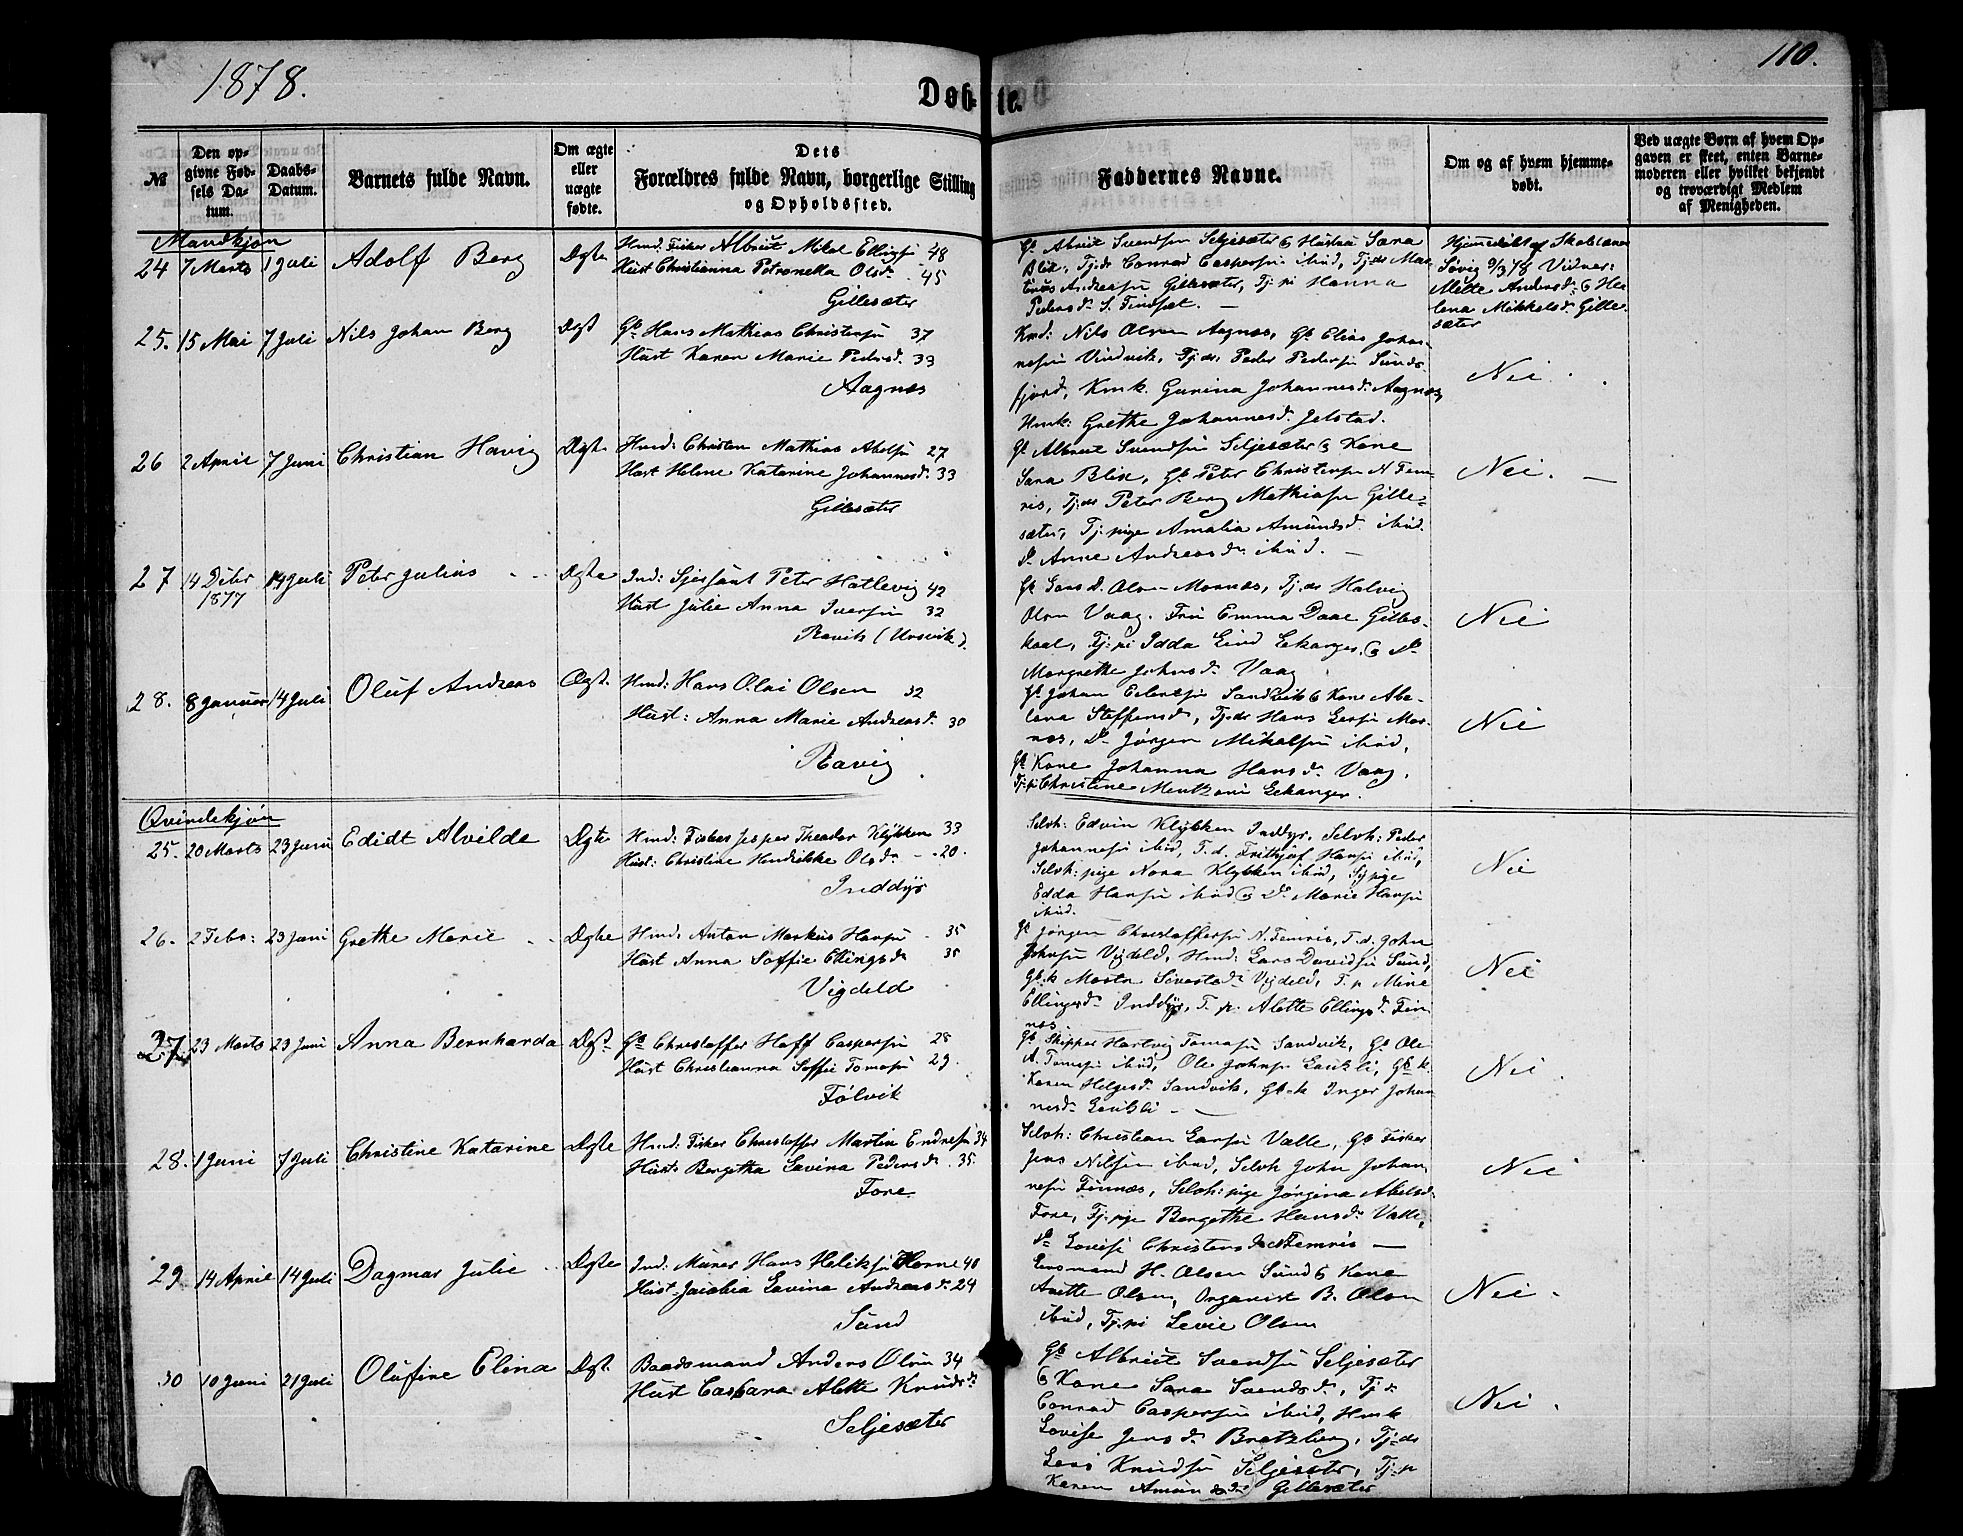 1878.
110.
Døb- te.
№
Den op-
givne Fød-
sels Da-
tum.
Daabs-
Datum.
Barnets fulde Navn.
Om ægte
eller
uægte
fødte.
Dets
Forældres fulde Navn, borgerlige Stilling
og Opholdssted.
Faddernes Navne.
Om og af hvem hjemme-
døbt.
Ved uægte Børn af hvem Op-
gaven er skeet, enten Barne-
moderen eller hvilket bekjendt
og troværdigt Medlem
af Menigheden.
Mandkjøn
24 7 Marts 1 Juli Adolf Berg Ægte Hmd. Fisker Albrict Mikal Ellingsen 48
Hust Christianna Petronella Olsdr. 45
Gillesæter
Gb. Albrict Svendsen Seljesæter & Hustru Sara
Blix, Tj.dr Conrad Caspersen ibid, Tj.dr Mar-
tinus Andreasen Gillesæter, Tj. pi Hanna
Pedersdr. S. Finset. —
Hjemmedøbt af Skolelærer
Søvig 9/3 78 Vidner:
Mette Andersdr. & He-
lena Mikkelsdr. Gille-
sæter
25. 15 Mai 7 Juli Nils Johan Berg Ægt Gb. Hans Mathias Christensen 37
Hust Karen Marie Pedersd. 33
Aagnæs
Kmd: Nils Olsen Aagnæs, Gb. Elias Johan-
nesen Vindvik, Tj.dr. Peder Pedersen Sunds-
fjord, Kmk. Gurina Johannesdr. Aagnæs,
Hmk: Grethe Johannesdr. Jelstad.
Nei.
26 2 April 7 Juni Christian Havig Ægte Hmd: Christen Mathias Abelsen 27
Hust Helene Katarine Johannesd. 33
Gillesæter
Gb. Albrict Svendsen Seljesæter & Kone
Sara Blix, Gb. Peter Christensen N Fem-
ris, Tj.dr Peter Berg Mathiasen Gille-
sæter, Tj: pige Amalia Amundsd. ibid.
Do. Anne Andreasdr. ibid. —
Nei. —
27 14 Debr 14 Juli Peter Julius Ægte Ind: Sjersant Peter Hatlevig 42
1877 Hust Julie Anna Iversen 32
Ravik (Ursvik).
Gb. Lars d. Olsen Mornæs, Tj.dr Halvig
Olsen Vaag. Fru Emma Daae Gilles-
kaal, Tj. pi Idda Lind Eekanger, & Do.
Margrethe Johnsdr. Vaag
Nei
28. 8 Januar 14 Juli Oluf Andreas Ægt. Hmd: Hans Olai Olsen 32
Hust: Anna Marie Andreasd. 30
Ravig
Gb. Johan Edensen Sandvik & Kone Abe-
lona Steffensdr, Tj.dr Hans Larsen Mor-
næs, Do. Jørgen Mikalsen ibid,
Gb. Kone Johanna Hansdr. Vaag.
Tj. pi Christine Mentzoni Eekanger.
Nei
Qvindekjøn
25. 20 Marts 23 Juni Edidt Alvilde Ægte Hmd: Fisker Jesper Theodor Klykken 33
Hust: Christine Hendrikke Olsdr — 20.
Inddyr
Selvh: Edvin Klykken Inddyr, Selvh: Peder
Johannesen ibid, T. d. Frithjof Hansen ibid,
Selvh: pige Nora Klykken ibid, Sy pige
Edda Hansen ibid & Do. Marie Hansen
ibid.
Nei
26. 2 Febr: 23 Juni Grethe Marie Ægte Hmd: Anton Markus Hansen 35
Hust Anna Soffie Ellingsdr 35
Vigdeld
Gb. Jørgen Christoffersen N. Femris, T. d. John
Johnsen Vigdeld, Hmd: Lars Davidsen Sund,
Gb.k Marta Sivertsdr. Vigdeld, T. p Mine
Ellingsdr. Inddyr, T. p: Alette Ellingsdr. Fin-
næs.
Nei
27 23 Marts 23 Juni Anna Bernharda Ægt. Gb. Christoffer Hoff Caspersen 28
Hust Christianna Soffie Tomasen 29.
Følvik
Gb. Skipper Hartvig Tomasen Sandvik, Gb. Ole
A. Tomasen ibid, Ole Johnsen Enkli, Gb. k.
Karen Helgesdr. Sandvik, Gb. k Inger Johan-
nesdr. Enkli —
Nei.
28. 1 Juni 7 Juli Christine Katarine Ægte Hmd: Fisker Christoffer Martin Endresen 34
Hust: Bergitha Lavina Pedersdr. 35
Fore
Selvh: Christian Larsen Valle, Gb. Fisker
Jens Nilsen ibid, Selvh John Johan-
nesen Finnæs, Selvh: pige Jørgina Abelsd.
Fore, Tj. pige Bergithe Hansdr. Valle,
Do. Lovise Christensdr. N Femris —
Nei
29 14 April 14 Juli Dagmar Julie Ægte Ind: Murer Hans Heliksen Horne 40
Hust. Jacobia Lavina Andreasdr. 24
Sund
Lensmand H. Olsen Sund & Kone
Anette Olsen, Organist B. Olsen
ibid, Tj. pi Levie Olsen
Nei.
30 10 Juni 21 Juli Olufine Elina Ægt. Baadsmand Anders Olsen 34
Hust Casbara Alette Knudsdr
Seljesæter
Gb. Albrict Svendsen Seljesæter
& Kone Sara Svendsdr, Tj. dr
Conrad Caspersen ibid, Hmk
Lovise Jensdr. Bratzberg, Tj. dr
Lars Knudsen Seljesæter, Tj. p
Karen Amundsdr Gillesæter
Nei.